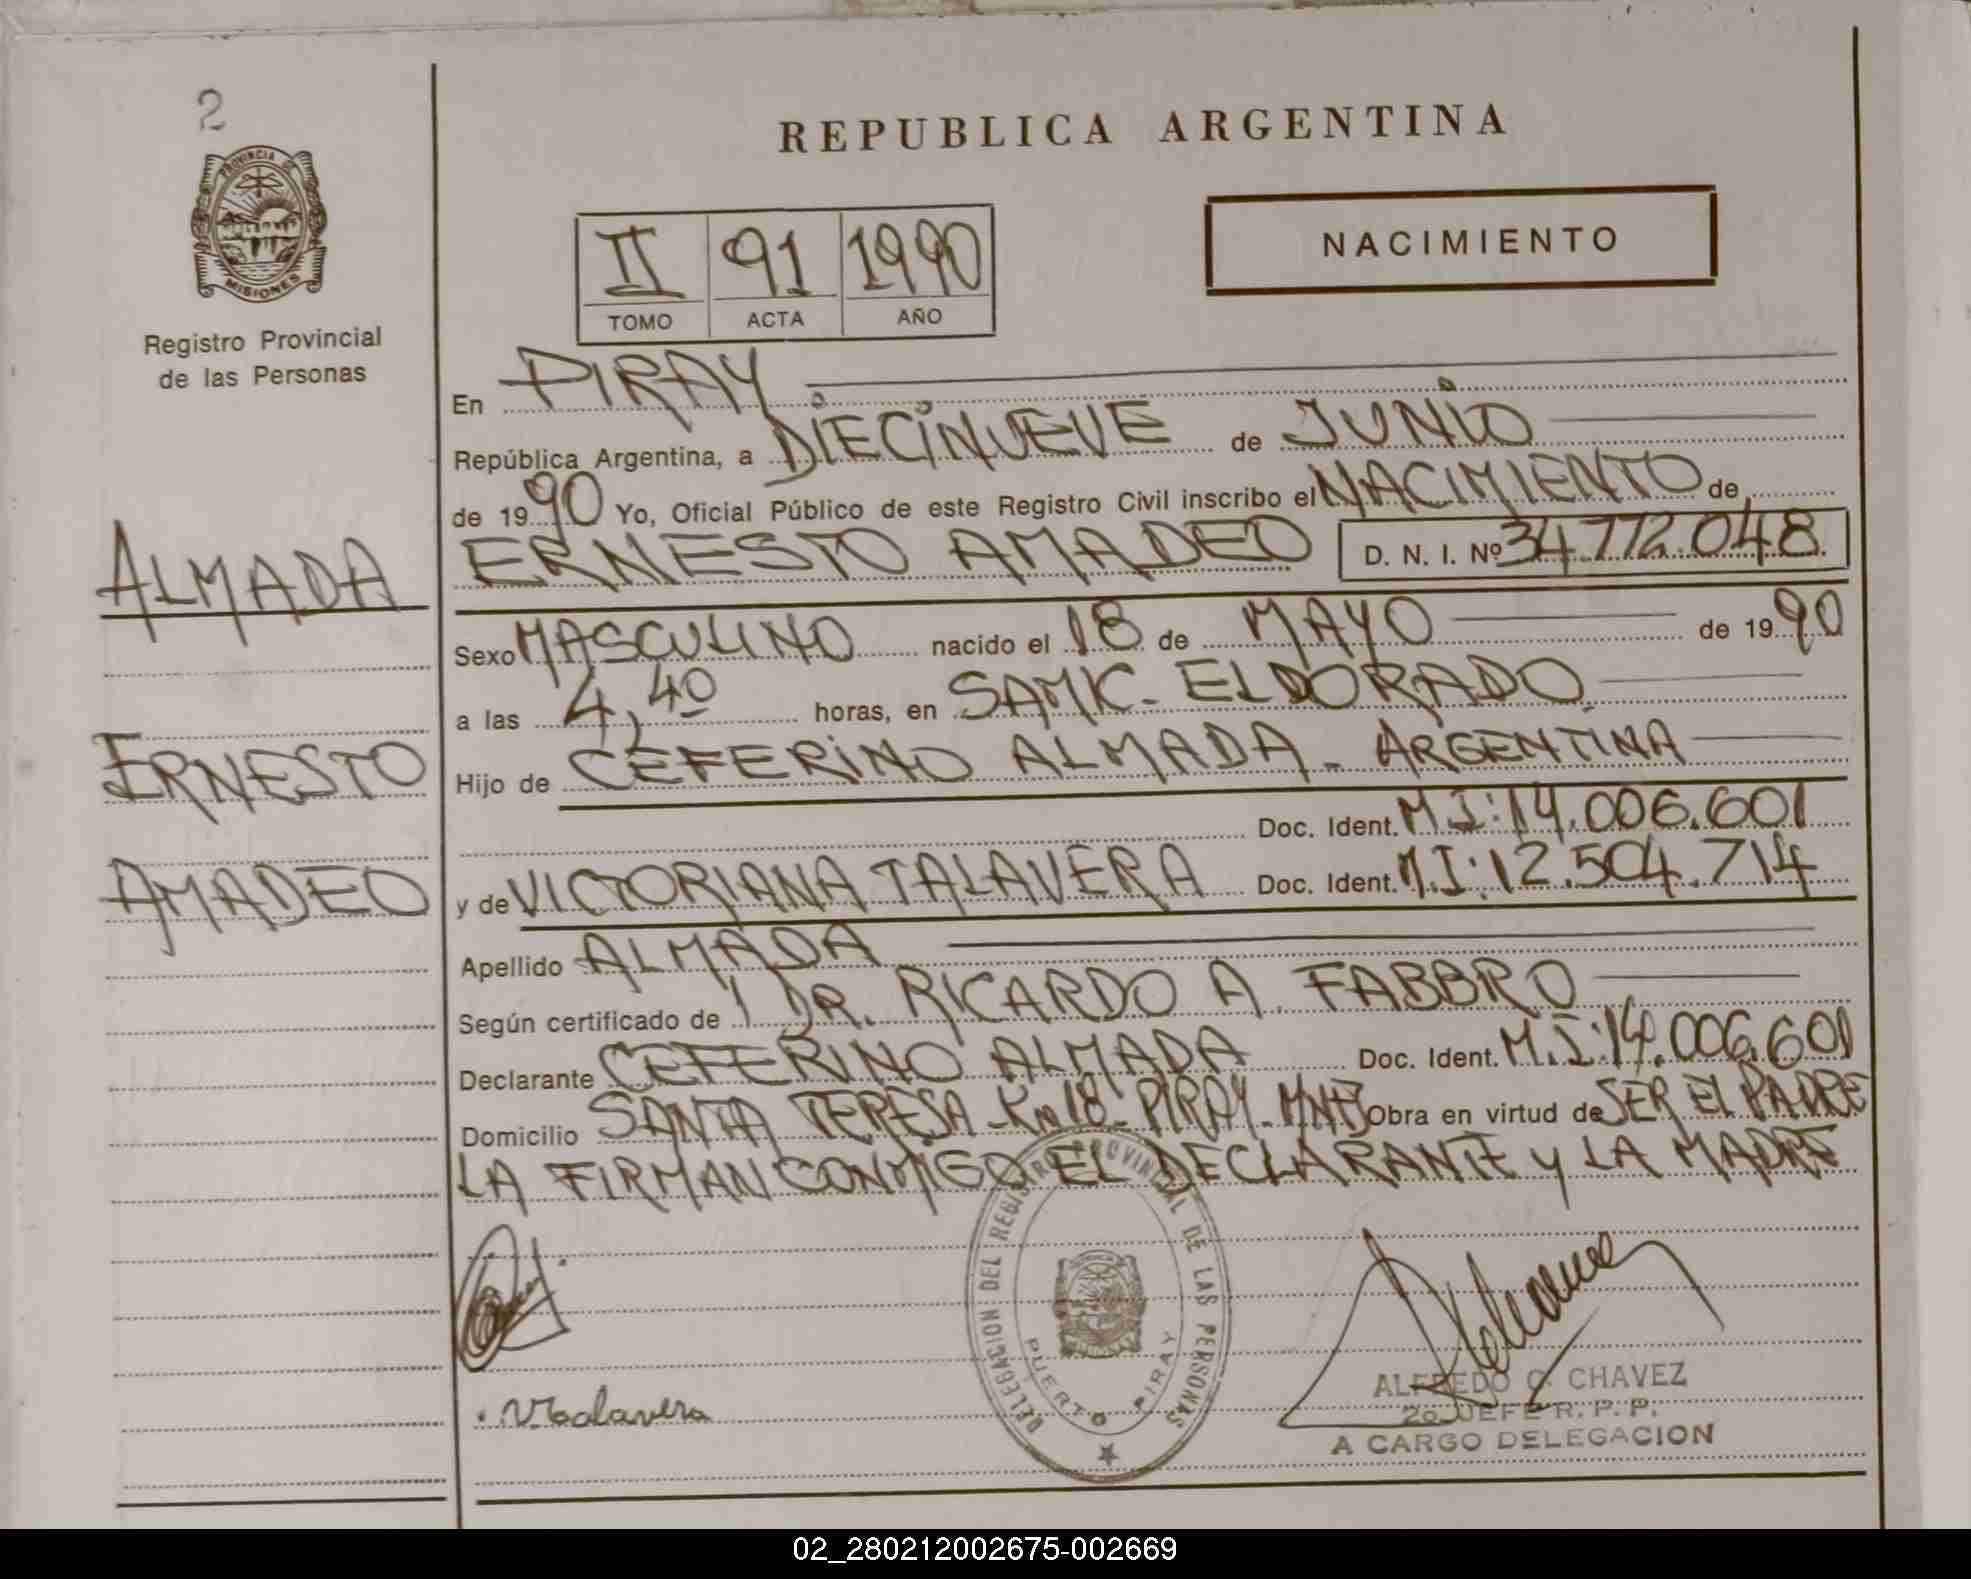 2
PROVINCIA DE
MISIONES
Registro Provincial
de las Personas
ALMADA
ERNESTO
AMADEO
REPUBLICA ARGENTINA
II 91 1990
TOMO ACTA AÑO
NACIMIENTO
En PIRAY
República Argentina, a DIECINUEVE de JUNIO
de 1990 Yo, Oficial Público de este Registro Civil inscribo el NACIMIENTO de
ERNESTO AMADEO D. N. I. Nº 34.772.048
Sexo MASCULINO nacido el 18 de MAYO de 1990
a las 4,40 horas, en SAMIC. ELDORADO
Hijo de CEFERINO ALMADA. ARGENTINA
Doc. Ident. M.I:14.006.601
y de VICTORIANA TALAVERA Doc. Ident. M.I:12.504.714
Apellido ALMADA
Según certificado de DR. RICARDO A. FABBRO
Declarante CEFERINO ALMADA Doc. Ident. M.I:14.006.601
Domicilio SANTA TERESA - Km 18 - PIRAY - MNES Obra en virtud de SER EL PADRE
LA FIRMAN CONMIGO EL DECLARANTE y LA MADRE
DELEGACION DEL REGISTRO PROVINCIAL DE LAS PERSONAS
PUERTO PIRAY
VTalavera
ALFREDO C. CHAVEZ
2o. JEFE R. P. P.
A CARGO DELEGACION
02_280212002675-002669